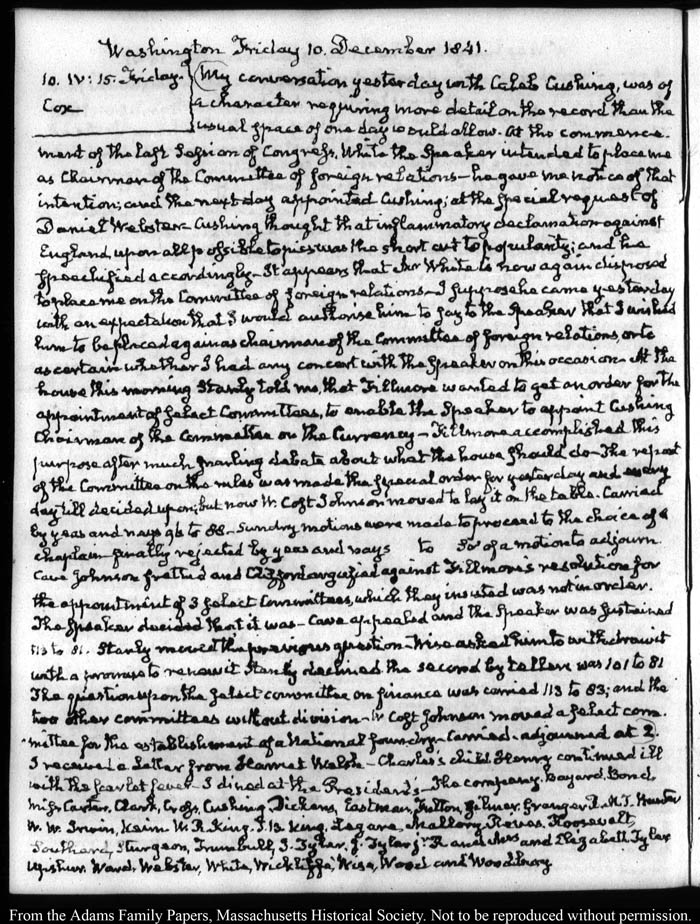 Washington Friday 10. December 1841.
10. IV: 15. Friday.
Cox
My conversation yesterday with Caleb Cushing, was of
a character requiring more detail on the record than the
usual space of one day would allow. At the commence-
ment of the last Session of Congress, White the Speaker intended to place me
as Chairman of the Committee of foreign relations – he gave me notice of that
intention; and the next day appointed Cushing; at the special request of
Daniel Webster – Cushing thought that inflammatory declamation against
England, upon all possible topics was the short cut to popularity; and he
speechified accordingly – It appears that Mr White is now again disposed
to place me on the Committee of foreign relations – I suppose he came yesterday
with an expectation that I would authorise him to say to the Speaker that I wished
him to be placed again as chairman of the Committee of foreign relations, or to
ascertain whether I had any concert with the Speaker on this occasion – At the
house this morning Stanly told me, that Fillmore wanted to get an order for the
appointment of select Committees, to enable the Speaker to appoint Cushing
Chairman of the Committee on the Currency – Fillmore accomplished this
purpose after much snarling debate about what the house should do – The report
of the Committee on the rules was made the special order for yesterday and every
day till decided upon; but now W. Cost Johnson moved to lay it on the table. Carried
by yeas and nays 96 to 88 – Sundry motions were made to proceed to the choice of a
chaplain – finally rejected by yeas and nays to So of a motion to adjourn.
Cave Johnson fretted and Clifford argufied against Fillmore's resolution for
the appointment of 3 select Committees, which they insisted was not in order.
The Speaker decided that it was – Cave appealed and the Speaker was sustained
113 to 81. Stanly moved the previous question – Wise asked him to withdraw it
with a promise to renew it Stanly declined the second by tellers was 101 to 81
The question upon the select committee on finance was carried 113 to 83; and the
two other committees without division – W Cost Johnson moved a select com-
mittee for the establishment of a National foundry – Carried – adjourned at 2.
I received a Letter from Harriet Welsh – Charles's child Henry continued ill
with the scarlet fever – I dined at the President's – The company. Bayard, Bond,
Miss Carter, Clark, Cross, Cushing Dickens, Eastman, Fulton, Gilmer, Granger R. M. T. Hunter
W. W. Irwin, Keim W. R. King, T. B. King, Legare, Mallory, Roosevelt
Southard, Sturgeon, Trumbull, J. Tyler, J. Tyler jr R and Mrs and Elizabeth Tyler
Upshur. Ward, Webster, White, Wickliffe, Wise, Wood and Woodbury
From the Adams Family Papers, Massachusetts Historical Society. Not to be reproduced without permission.